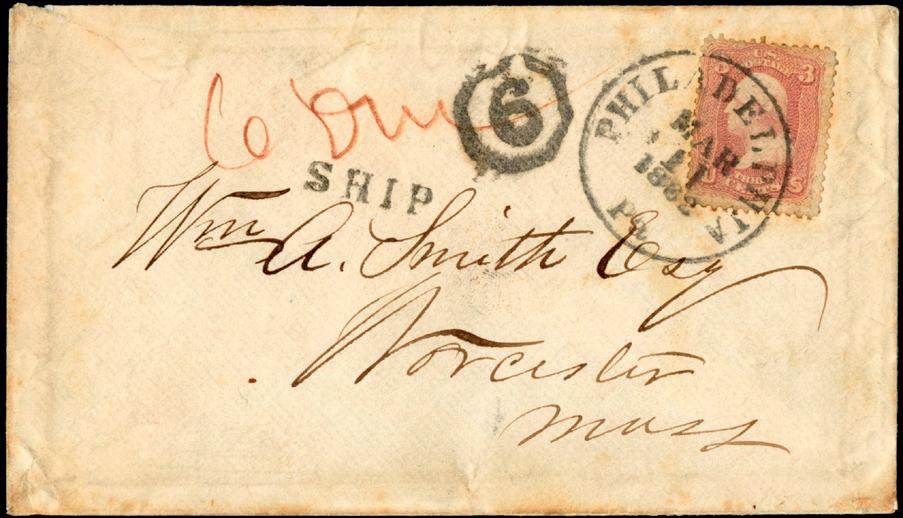 6 Due
6
SHIP
PHILADELPHIA
MAR
1862
Pa
3
U.S.
POSTAGE
THREE
CENTS
Wm A. Smith Esq
Worcester
Mass